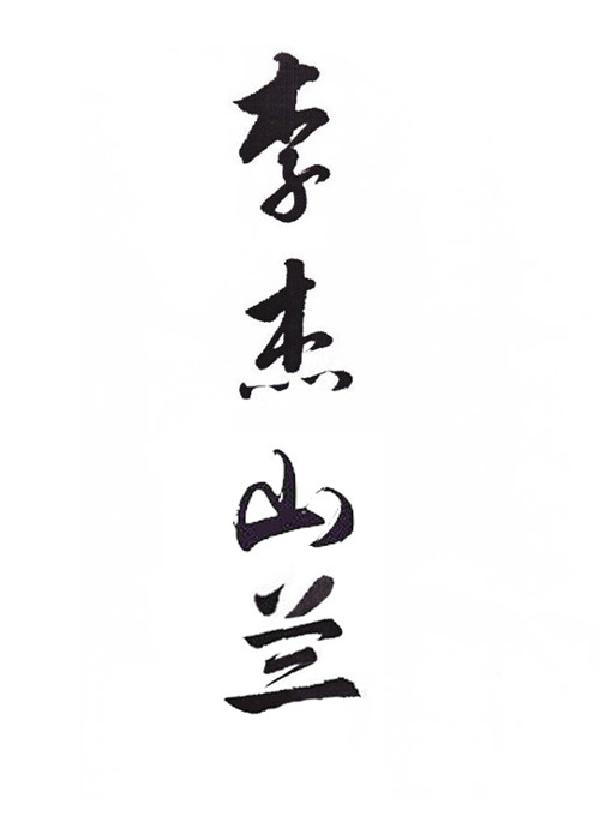 李杰山兰